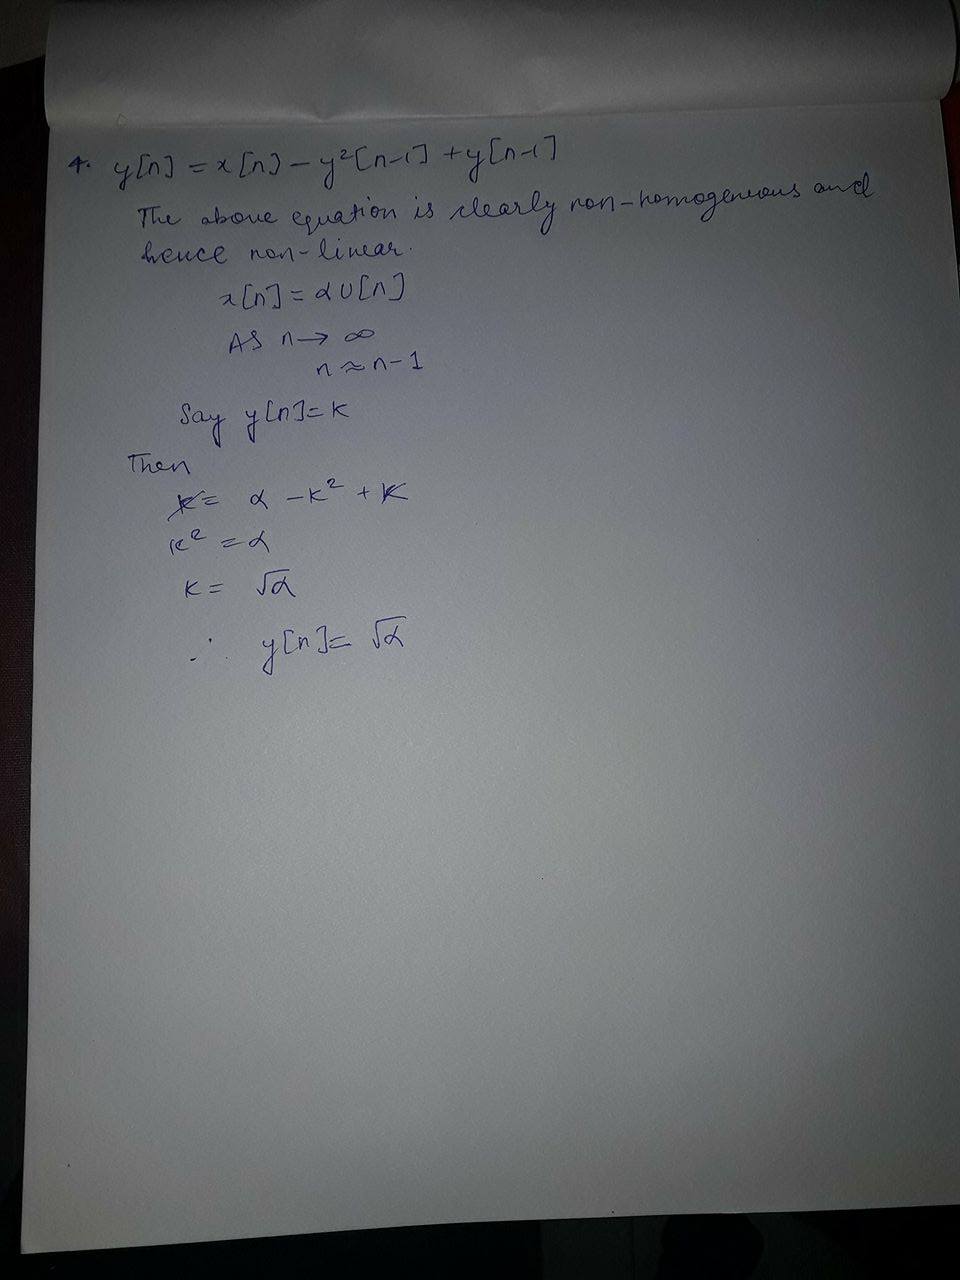 4. y[n] = x[n] - y²[n-1] + y[n-1]
The above equation is clearly non-homogeneous and
hence non-linear.
x[n] = αu[n]
As n → ∞
n ≈ n-1
Say y[n] = k
Then
k = α - k² + k
k² = α
k = √α
∴ y[n] = √α